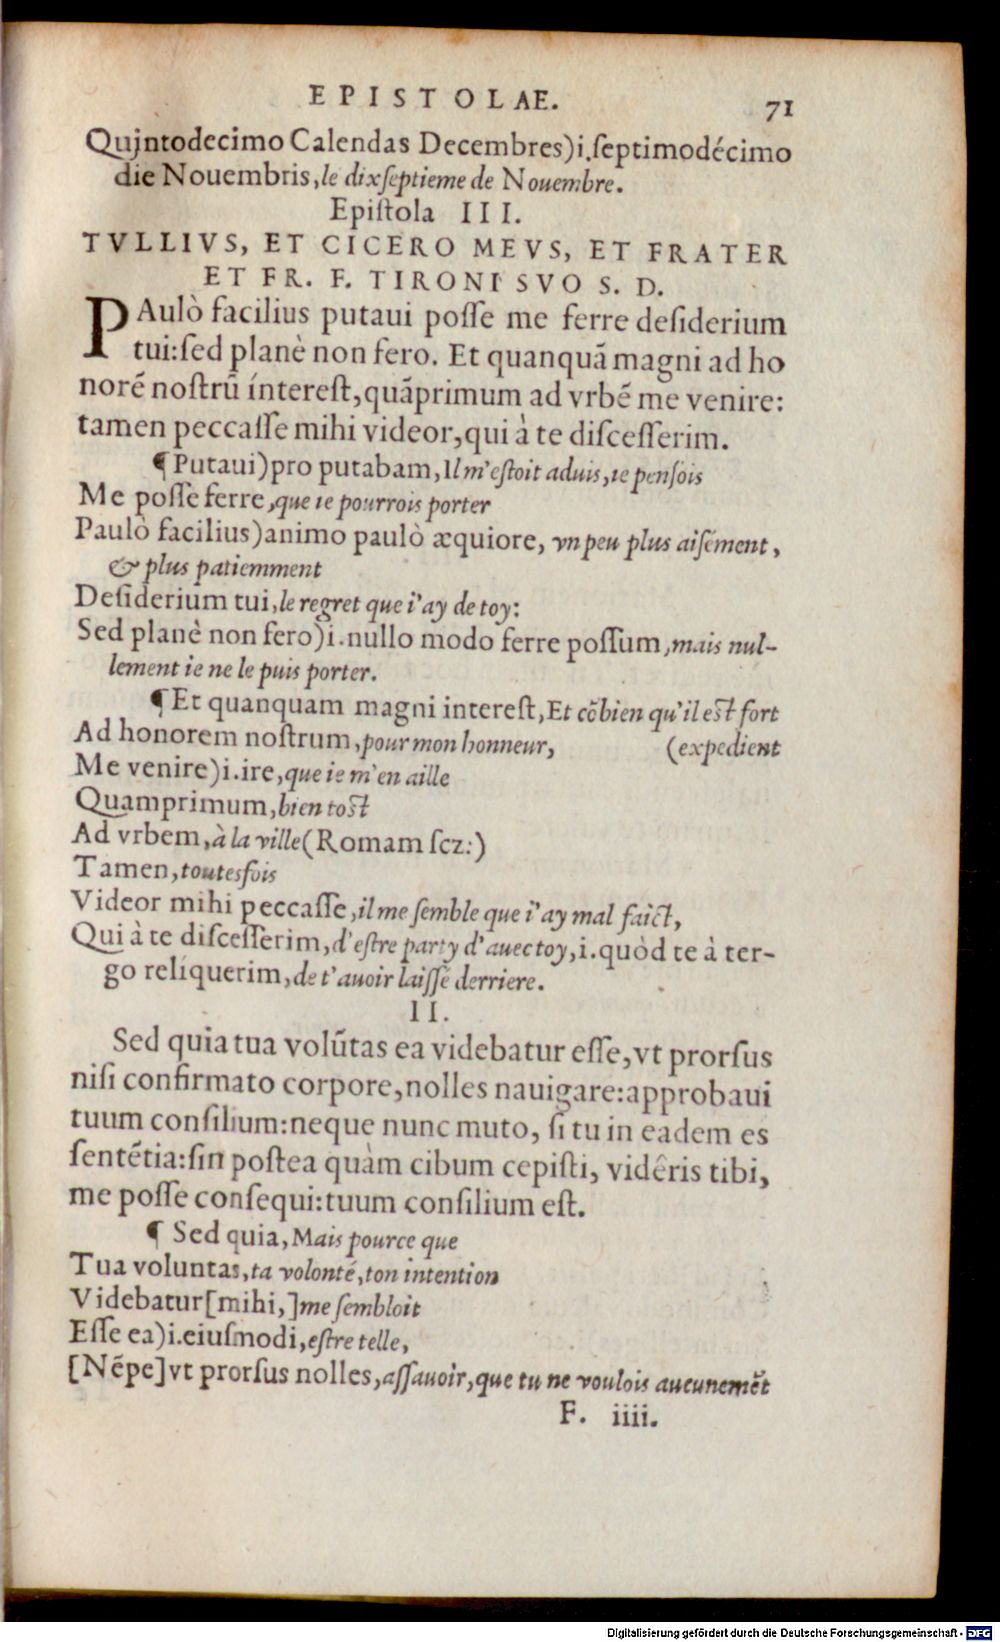 EPISTOLAE. 71
Quintodecimo Calendas Decembres)i.ſeptimodécimo
die Nouembris, le dixſeptieme de Nouembre.
Epiſtola III.
TVLLIVS, ET CICERO MEVS, ET FRATER
ET FR. F. TIRONI SVO S. D.
PAulò facilius putaui poſſe me ferre deſiderium
tui:ſed planè non fero. Et quanquã magni ad ho
norẽ noſtrũ íntereſt, quãprimum ad vrbẽ me venire:
tamen peccaſſe mihi videor, qui à te diſceſſerim.
¶ Putaui)pro putabam, Il m'eſtoit aduis, ie penſois
Me poſſe ferre, que ie pourrois porter
Paulò facilius)animo paulò æquiore, vn peu plus aiſément,
& plus patiemment
Deſiderium tui, le regret que i'ay de toy:
Sed planè non fero)i.nullo modo ferre poſſum, mais nul-
lement ie ne le puis porter.
¶ Et quanquam magni intereſt, Et cõbien qu'il eſt fort
Ad honorem noſtrum, pour mon honneur, (expedient
Me venire)i.ire, que ie m'en aille
Quamprimum, bien toſt
Ad vrbem, à la ville (Romam ſcz:)
Tamen, toutesfois
Videor mihi peccaſſe, il me ſemble que i'ay mal faict,
Qui à te diſceſſerim, d'eſtre party d'auec toy, i.quòd te à ter-
go relíquerim, de t'auoir laiſſé derriere.
II.
Sed quia tua volũtas ea videbatur eſſe, vt prorſus
niſi confirmato corpore, nolles nauigare:approbaui
tuum conſilium:neque nunc muto, ſi tu in eadem es
ſentẽtia:ſin poſtea quàm cibum cepiſti, vidêris tibi,
me poſſe conſequi:tuum conſilium eſt.
¶ Sed quia, Mais pource que
Tua voluntas, ta volonté, ton intention
Videbatur[mihi,]me ſembloit
Eſſe ea)i.eiuſmodi, eſtre telle,
[Nẽpe]vt prorſus nolles, aſſauoir, que tu ne voulois aucunemẽt
F. iiii.
Digitalisierung gefördert durch die Deutsche Forschungsgemeinschaft - DFG